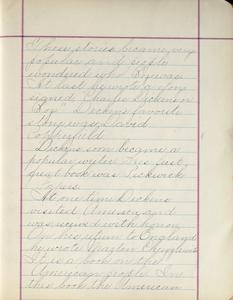 These stories became very
popular and people
wondered who Boz was.
At last he wrote a story
signed, Charles Dickinson
Boz" Dickens favorite
story was, David
Copperfield.
Dickens soon became a
popular writer. His first
great book was Pickwick
Papers.
At one time Dickens
visited America and
was received with honor.
On his return to England
he wrote Martin
It is a book on the
American people. In
this book the American